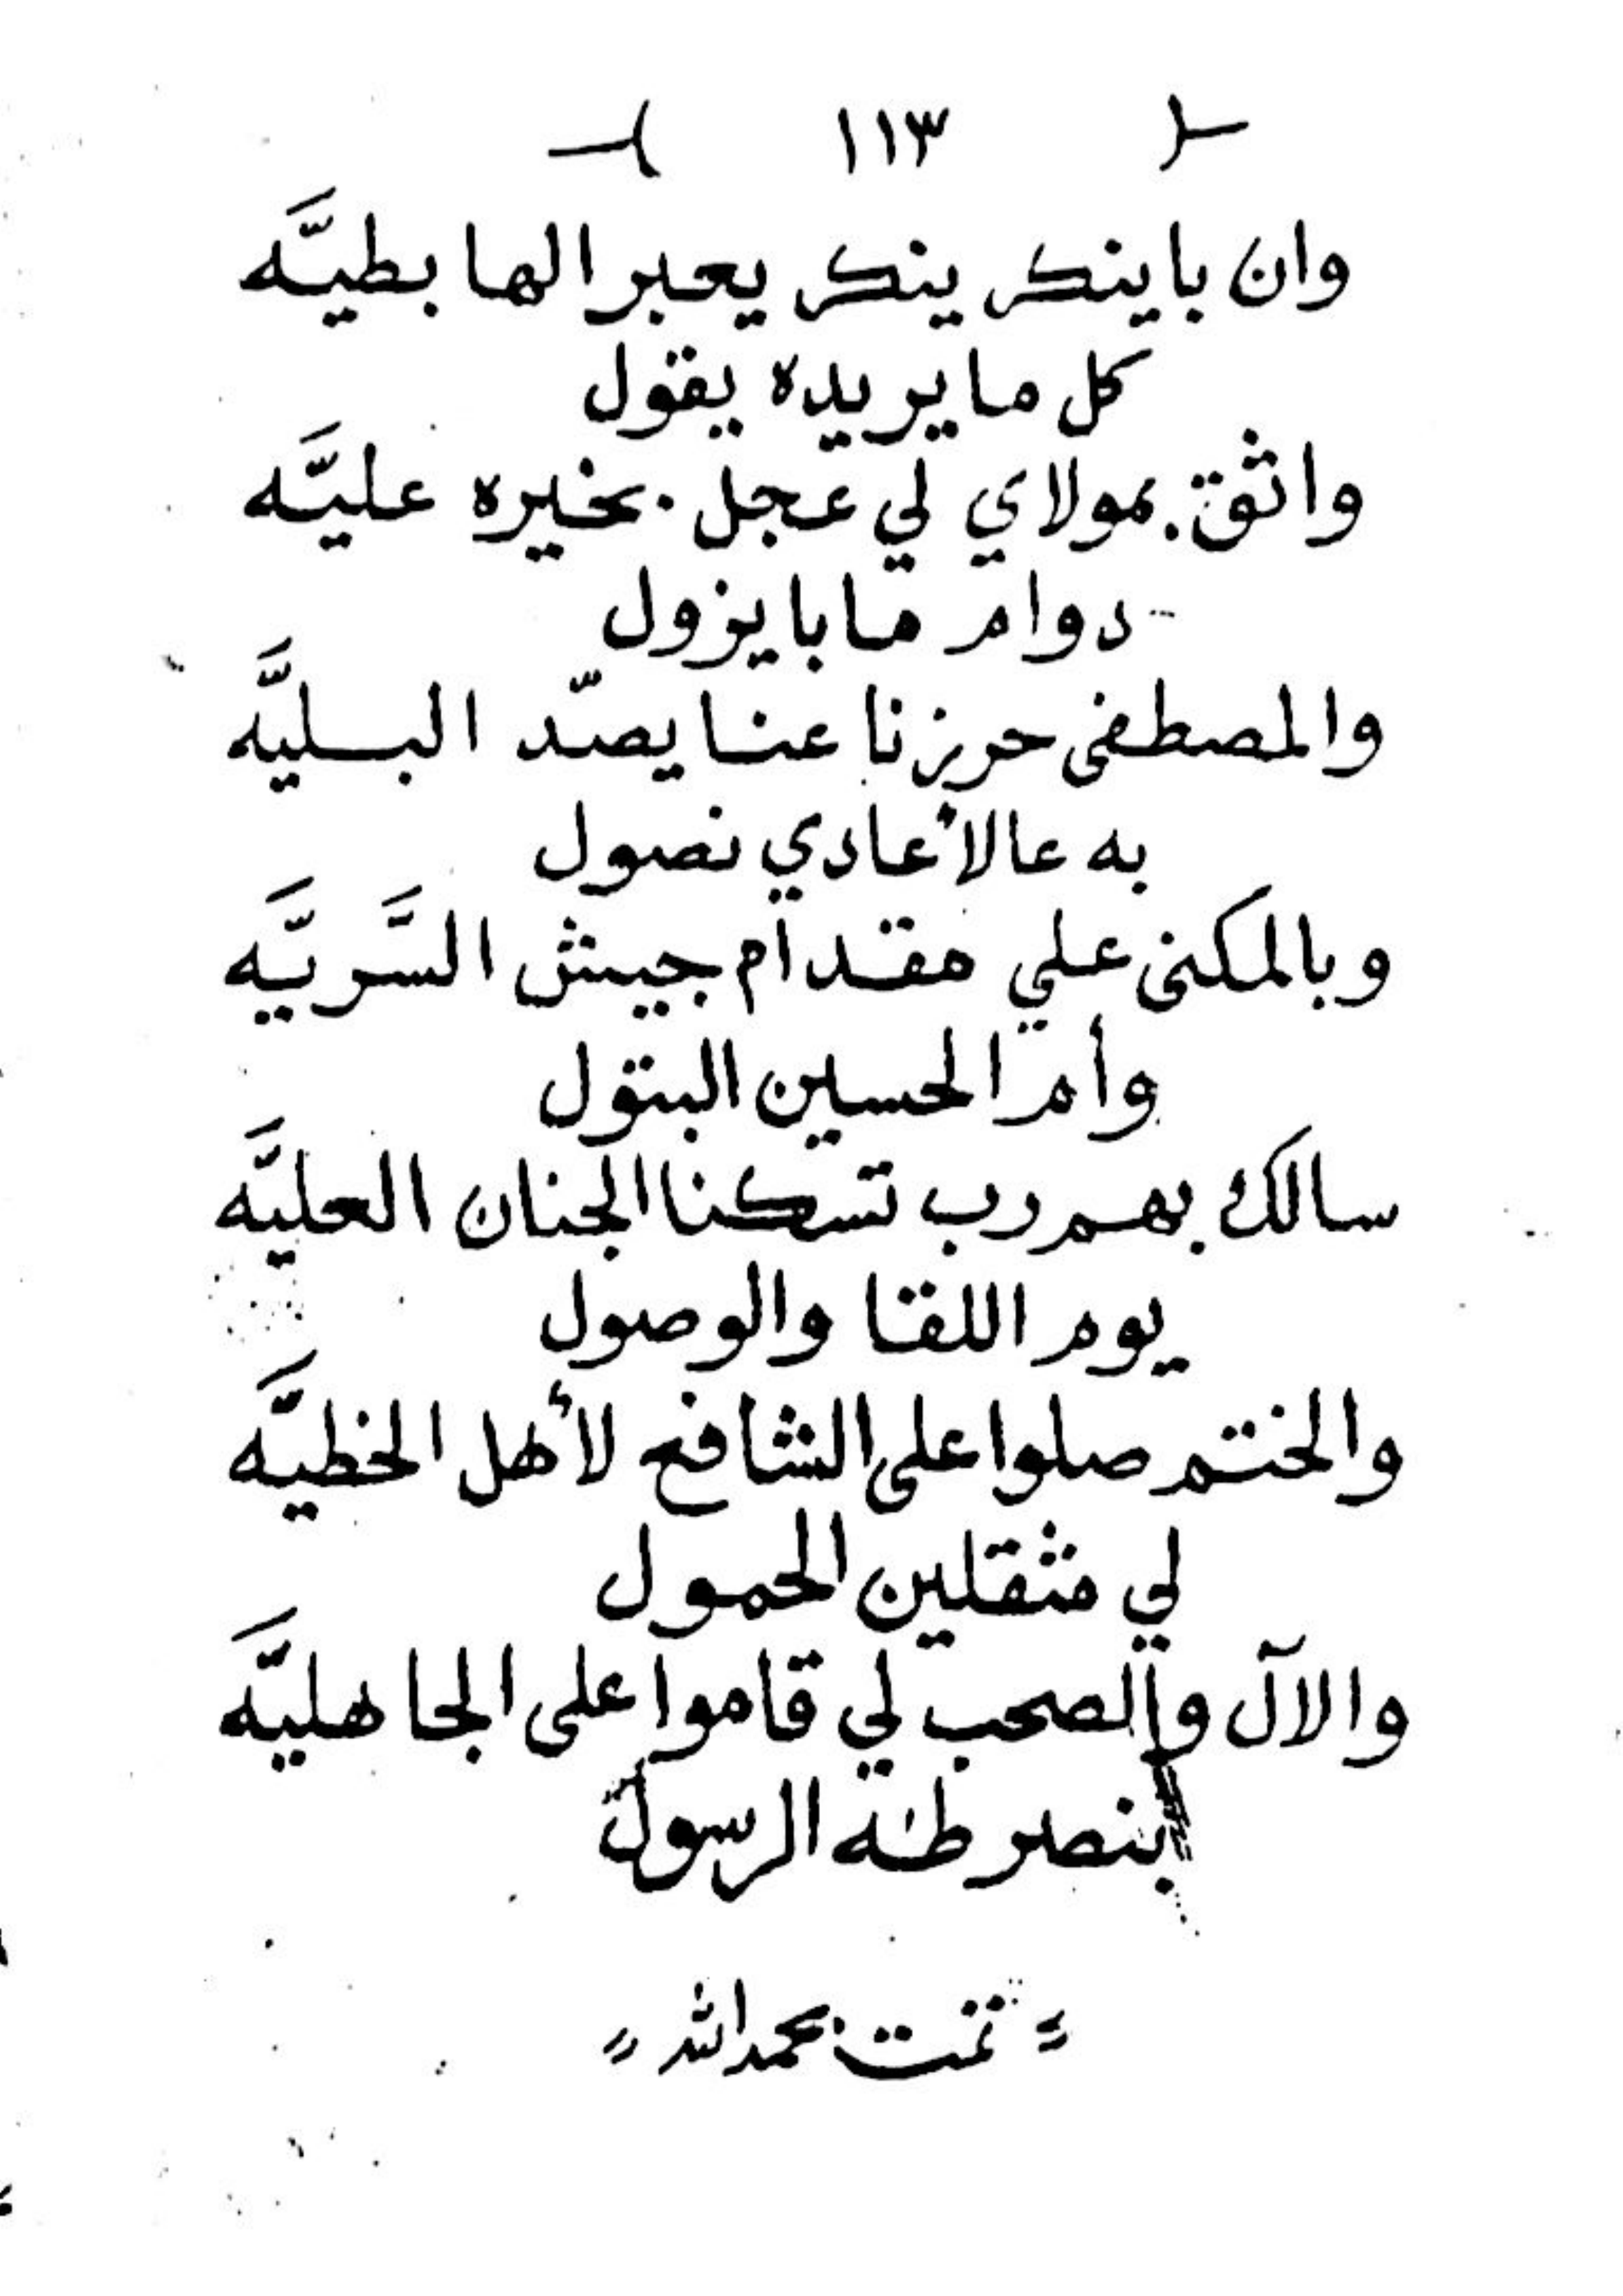 ١١٣
وان باينكر ينكر يعبر الها بطيَّه
كل ما يريده يقول
واثق بمولاي لي عجل بخيره عليَّه
دوام ما با يزول
والمصطفى حرزنا عنا يصدّ البليَّه
به عالأعادي نصول
وبالمكنى علي مقدام جيش السَّريَّه
وأم الحسين البتول
سالك بهم رب تسكنا الجنان العليَّه
يوم اللقا والوصول
والختم صلوا على الشافع لأهل الخطيَّه
لي مثقلين الحمول
والآل والصحب لي قاموا على الجاهليَّه
بنصر طه الرسول
= تمت بحمد الله =